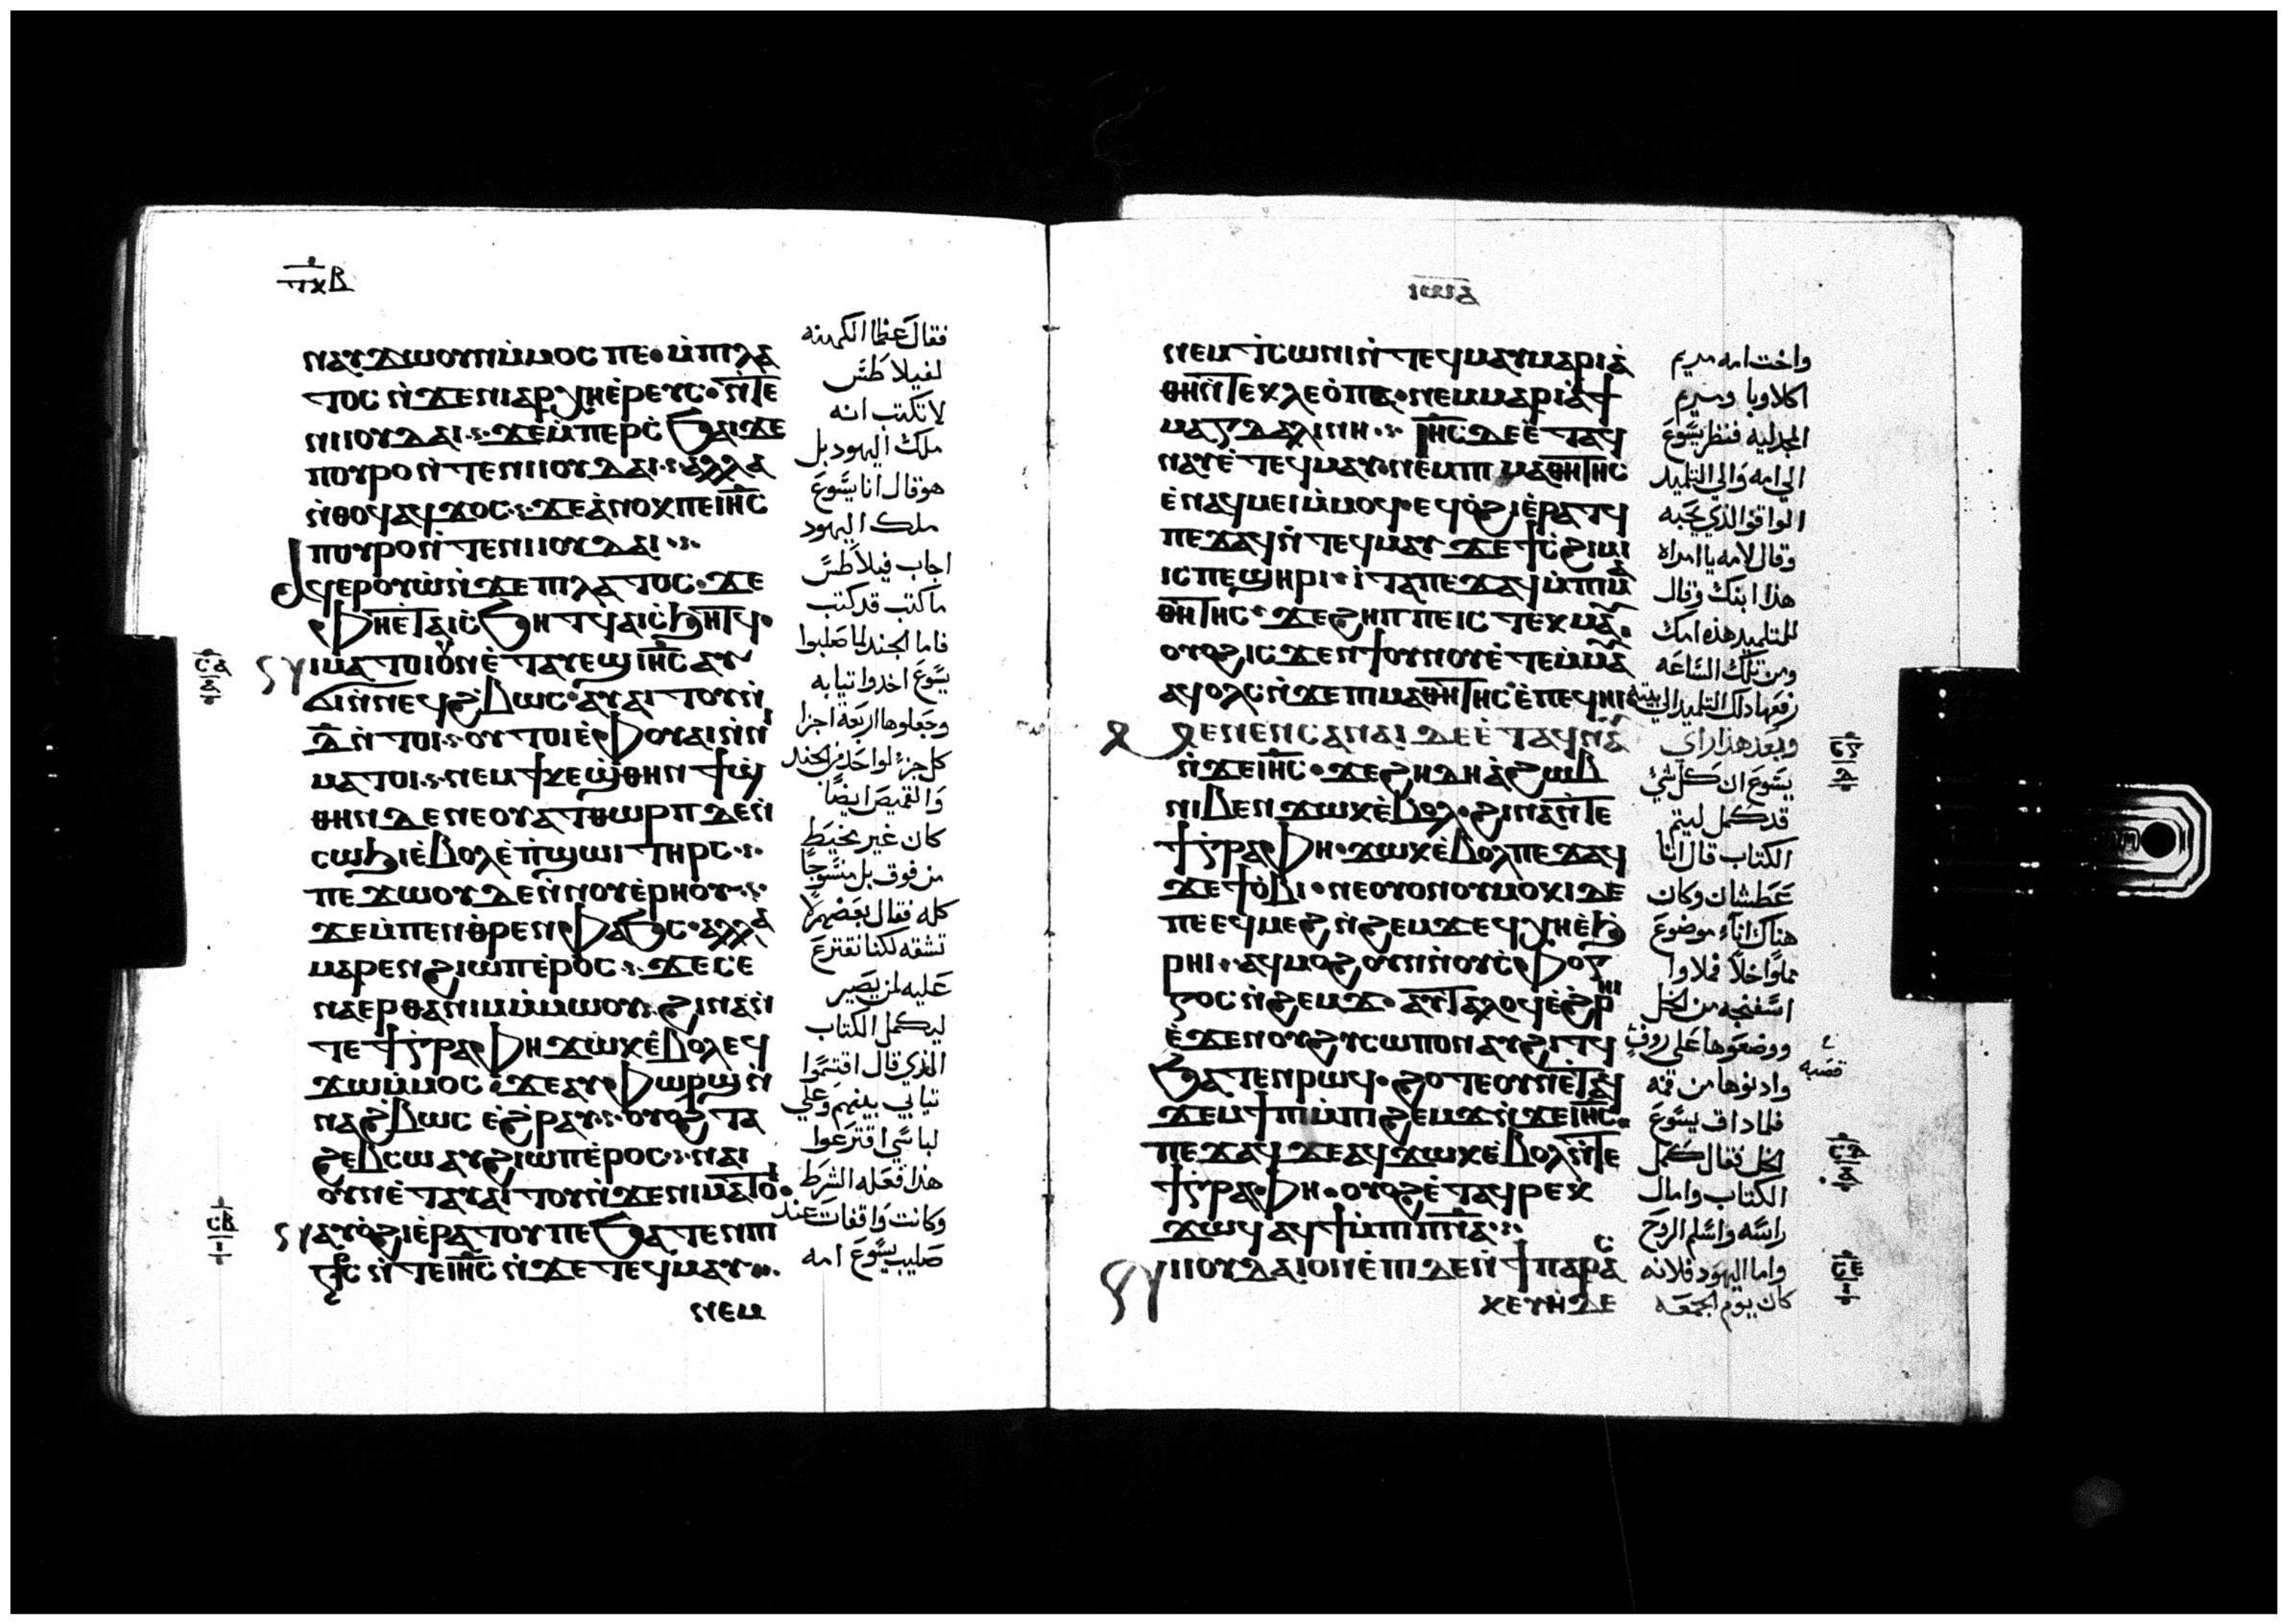 ⲧⲝⲃ
ⲛⲁⲩϫⲱⲟⲩⲙⲙⲟⲥ ⲡⲉ ⲙⲡⲓⲗⲁ
ⲧⲟⲥ ⲛϫⲉⲛⲓⲁⲣⲭⲏⲉⲣⲉⲩⲥ ⲛⲧⲉ
ⲛⲓⲓⲟⲩⲇⲁⲓ ϫⲉⲙⲡⲉⲣⲥϧⲁⲓϫⲉ
ⲡⲟⲩⲣⲟⲛⲧⲉⲛⲓⲓⲟⲩⲇⲁⲓ ⲁⲗⲗⲁ
ⲛⲑⲟϥⲁϥϫⲟⲥ ϫⲉⲁⲛⲟⲕⲡⲉⲓⲏⲥ
ⲡⲟⲩⲣⲟⲛⲧⲉⲛⲓⲓⲟⲩⲇⲁⲓ
ⲁϥⲉⲣⲟⲩⲱⲛϫⲉⲡⲓⲗⲁⲧⲟⲥ ϫⲉ
ⲫⲏⲉⲧⲁⲓⲥϧⲏⲧϥⲁⲓⲥϧⲏⲧϥ
ⲓⲙⲁⲧⲟⲓⲟⲩⲛⲉⲧⲁⲩⲉϣⲓⲏⲥⲁⲩ
ϭⲓⲛⲛⲉϥϩⲃⲱⲥ ⲁⲩⲁⲓⲧⲟⲩⲛ
ⲇⲛⲧⲟⲓ ⲟⲩⲧⲟⲓⲉⲫⲟⲩⲁⲓⲛⲛⲓ
ⲙⲁⲧⲟⲓ ⲛⲉⲙϯⲕⲉϣⲑⲏⲛ ϯϣ
ⲑⲏⲛ ⲇⲉⲛⲉⲟⲩⲁⲧⲑⲱⲣⲡ ⲇⲉⲛ
ⲥⲱϧⲓⲉⲃⲟⲗⲉⲡϣⲱⲓ ⲧⲏⲣⲥ
ⲡⲉϫⲱⲟⲩ ⲇⲉⲛⲛⲟⲩⲉⲣⲏⲟⲩ
ϫⲉⲙⲡⲉⲛⲑⲣⲉⲛⲫⲁϧⲥ ⲁⲗⲗⲁ
ⲙⲁⲣⲉⲛϩⲓⲱⲡⲉⲣⲟⲥ ϫⲉⲥⲉ
ⲛⲁⲉⲣⲑⲁⲛⲓⲙⲙⲙⲱⲟⲩ ϩⲓⲛⲁⲛ
ⲧⲉϯⲅⲣⲁⲫⲏ ϫⲱⲕⲉⲃⲟⲗⲉϥ
ϫⲱⲙⲙⲟⲥ ϫⲉⲁⲩⲫⲱⲣϣⲛ
ⲛⲁϩⲃⲱⲥ ⲉϩⲣⲁⲩ ⲟⲩⲟϩ ⲧⲁ
ϩⲉⲃⲥⲱ ⲁⲩϩⲓⲱⲡⲉⲣⲟⲥ ⲛⲁⲓ
ⲟⲩⲛⲉⲧⲁⲩⲁⲓⲧⲟⲩⲛϫⲉⲛⲓⲙⲁⲧⲟⲓ
ⲁⲩⲟϩⲓⲉⲣⲁⲧⲟⲩⲡⲉϧⲁⲧⲉⲛⲡⲓ
ⲛⲧⲉⲓⲏⲥ ⲛϫⲉⲧⲉϥⲙⲁⲩ
ⲛⲉⲙ
فقال عظما الكهنه
لفيلاطس
لا تكتب انه
ملك اليهود بل
هو قال انا يسوع
ملك اليهود
اجاب فيلاطس
ما كتب قد كتب
فاما الجند لما صلبوا
يسوع اخدوا تيابه
وجعلوها اربعة اجزا
كل جزء لواحد من الجند
والقميص ايضا
كان غير مخيط
من فوق بل منسوجا
كله فقال بعضهم لا
نشقه لكنا نقترع
عليه لمن يصير
ليكمل الكتاب
الذي قال اقتسموا
تيابي بينهم وعلي
لباسي اقترعوا
هذا فعله الشرط
وكانت واقفات عند
صليب يسوع امه
ⲥⲁ
ⲁ
ⲥⲃ
ⲓ
ⲓⲱⲁ
ⲛⲉⲙⲧⲥⲱⲛⲓⲛⲧⲉⲧⲉϥⲙⲁⲩⲙⲁⲣⲓⲁ
ⲑⲏⲛⲧⲉⲕⲗⲉⲟⲡⲁ ⲛⲉⲙⲙⲁⲣⲓⲁϯ
ⲙⲁⲅⲇⲁⲗⲓⲛⲏ ⲓⲏⲥ ⲇⲉⲉⲧⲁϥ
ⲛⲁⲩⲉⲧⲉϥⲙⲁⲩ ⲛⲉⲙⲡⲓⲙⲁⲑⲏⲧⲏⲥ
ⲉⲛⲁϥⲙⲉⲓⲙⲙⲟϥ ⲉϥⲟϩⲓⲉⲣⲁⲧϥ
ⲡⲉϫⲁϥⲛⲧⲉϥⲙⲁⲩ ϫⲉϯⲥϩⲓⲙⲓ
ⲓⲥⲡⲉϣⲏⲣⲓ ⲓⲧⲁⲡⲉϫⲁϥⲙⲡⲓⲙⲁ
ⲑⲏⲧⲏⲥ ϫⲉϩⲏⲡⲡⲉⲓⲥⲧⲉⲕⲙⲁⲩ
ⲟⲩⲟϩⲓⲥϫⲉⲛϯⲟⲩⲛⲟⲩⲉⲧⲉⲙⲙⲁ
ⲁϥⲟⲗⲥⲛϫⲉⲡⲓⲙⲁⲑⲏⲧⲏⲥⲉⲡⲉϥⲏⲓ
ⲙⲉⲛⲉⲛⲥⲁⲛⲁⲓ ⲇⲉⲉⲧⲁϥⲛⲁ
ⲛϫⲉⲓⲏⲥ ϫⲉϩⲏⲇⲏⲁϩⲱⲃ
ⲛⲓⲃⲉⲛϫⲱⲕⲉⲃⲟⲗ ϩⲓⲛⲁⲛⲧⲉ
ϯⲅⲣⲁⲫⲏ ϫⲱⲕⲉⲃⲟⲗⲡⲉϫⲁϥ
ϫⲉϯⲟⲃⲓ ⲛⲉⲟⲩⲟⲛⲟⲩⲙⲟⲕⲓⲇⲉ
ⲡⲉⲉϥⲙⲉϩ ⲛϩⲉⲙϫⲉϥⲭⲏⲉϧ
ⲣⲏⲓ ⲁⲩⲙⲟϩⲟⲩⲛⲛⲟⲩⲥⲫⲟⲅ
ⲅⲟⲥⲛϩⲉⲙϫ ⲁⲩⲧⲁⲗⲟϥⲉϩⲣⲏⲓ
ⲉϫⲉⲛⲟⲩϩⲩⲥⲱⲡⲟⲛ ⲁⲩϩⲓⲧϥ
ϧⲁⲧⲉⲛⲣⲱϥ ϩⲟⲧⲉⲟⲩⲛⲉⲧⲁϥ
ϫⲉⲙϯⲡⲓⲙⲡⲓϩⲉⲙϫⲛϫⲉⲓⲏⲥ
ⲡⲉϫⲁϥϫⲉⲁϥϫⲱⲕⲉⲃⲟⲗⲛⲧⲉ
ϯⲅⲣⲁⲫⲏ ⲟⲩⲟϩⲉⲧⲁϥⲣⲉⲕ
ϫⲱϥ ⲁϥϯⲙⲡⲓⲡⲛⲁ
ⲛⲓⲓⲟⲩⲇⲁⲓⲟⲛⲉⲡⲓ ⲇⲉⲛⲉϯⲡⲁⲣⲁⲥ
ⲕⲉⲩⲏ ⲇⲉ
واخت امه مريم
اكلاوبا ومريم
المجدليه فنظر يسوع
الي امه والي التلميد
الواقف الذي يحبه
وقال لامه يا امراه
هذا ابنك وقال
للتلميد هذه امك
ومن تلك الساعه
رفعها داك التلميد الي بيته
وبعد هذا راي
يسوع ان كل شي
قد كمل ليتم
الكتاب قال انا
عطشان وكان
هناك اناء موضوع
مملوا خلا فملاوا
اسفنجه من الخل
ووضعوها علي زوف
وادنوها من فمه
فلما داق يسوع
الخل فقال كمل
الكتاب وامال
راسه واسلم الروح
واما اليهود فلانه
كان يوم الجمعه
قصبه
ⲥⲅ
ⲥⲇ
ⲥⲉ
ⲓ